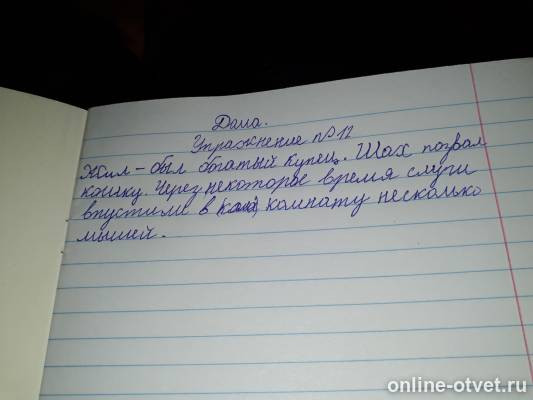 Дома.
Упражнение №12
Жил-был богатый купец. Шах позвал
кошку. Через некоторое время слуги
впустили в комнату несколько
мышей.
online-otvet.ru